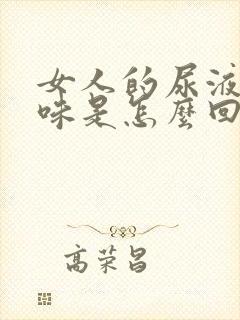 女人的尿液
味是怎麽回
高荣昌